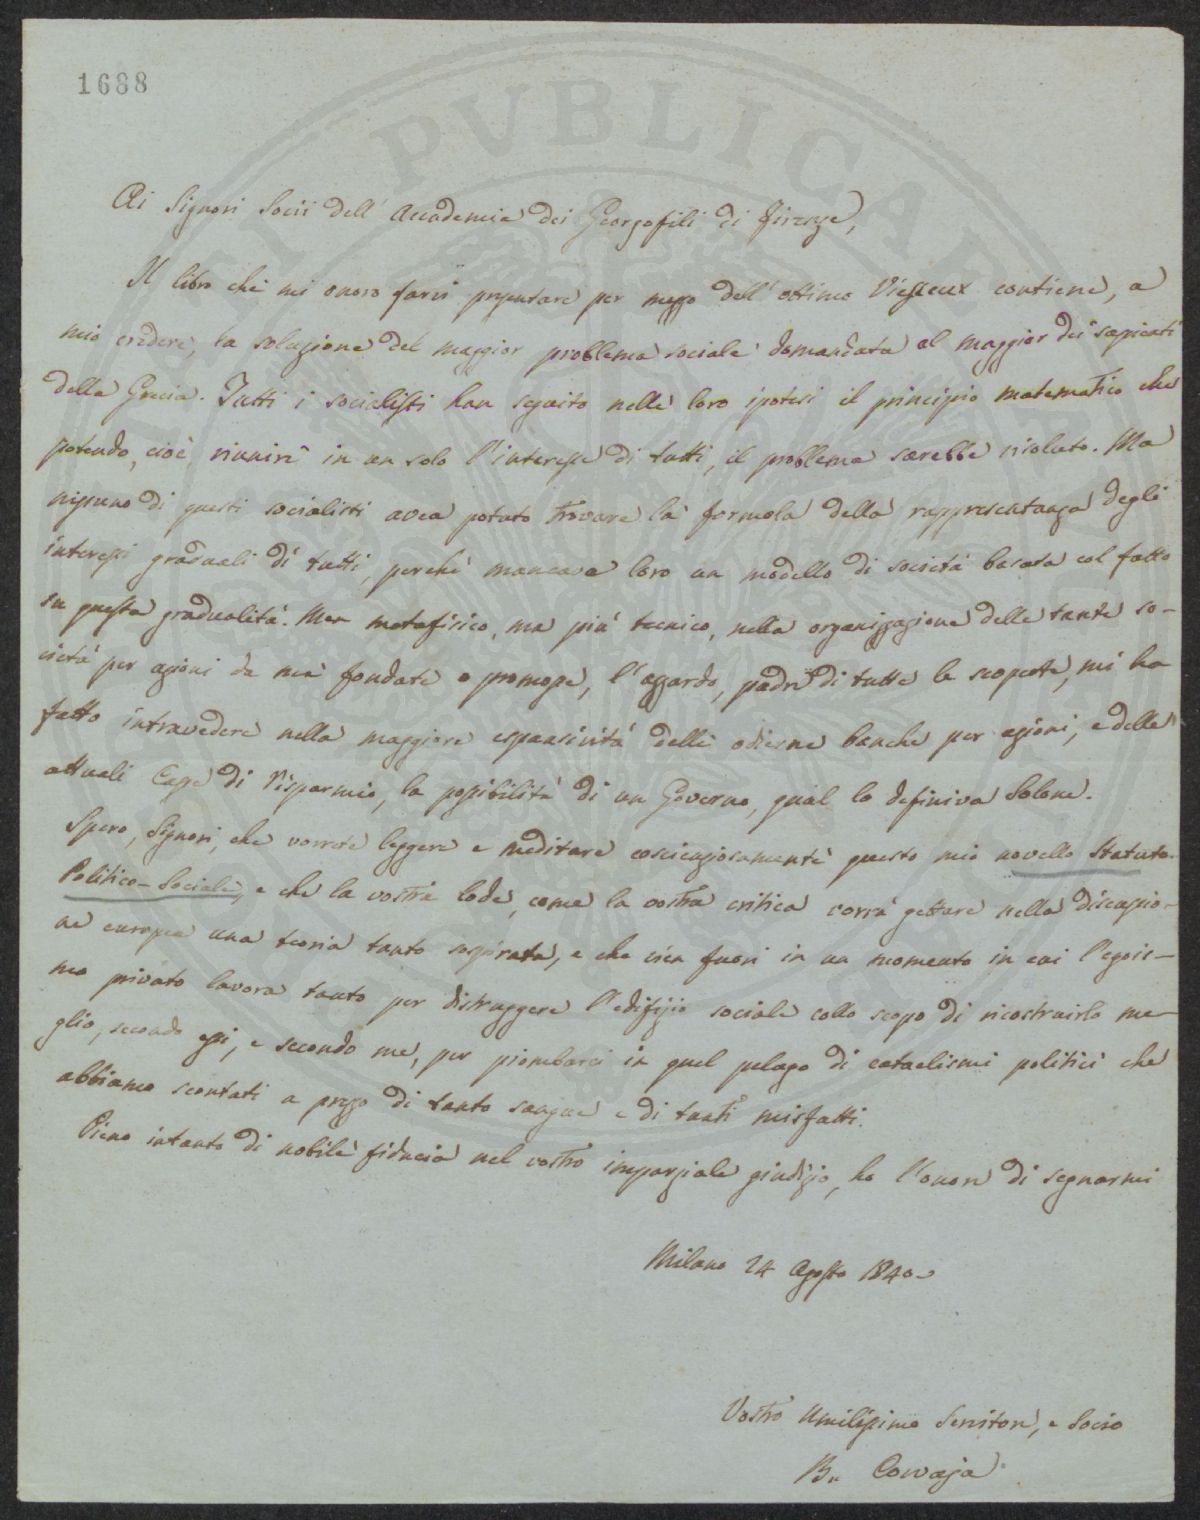 1688
Ai Signori Socii dell' Accademia dei Georgofili di Firenze,
Il libro che mi onoro farvi presentare per mezzo dell' ottimo Viesseux contiene, a
mio credere, la soluzione del maggior problema sociale domandata al maggior dei sapienti
della Grecia. Tutti i socialisti han seguito nelle loro ipotesi il principio matematico che
potendo, cioè, riunire in un solo l'interesse di tutti, il problema sarebbe risoluto. Ma
nissuno di questi socialisti avea potuto trovare la formola della rappresentanza degli
interessi graduali di tutti, perchè mancava loro un modello di società basata col fatto
su questa gradualità. Men metafisico, ma più tecnico, nella organizzazione delle tante so-
cietà per azioni da me fondate o promosse, l'azzardo, padre di tutte le scoperte, mi ha
fatto intravedere nella maggiore espansività delle odierne banche per azioni, e delle
attuali Casse di risparmio, la possibilità di un Governo, qual lo definiva Solone.
Spero, Signori, che vorrete leggere e meditare coscienziosamente questo mio novello Statuto
Politico-Sociale, e che la vostra lode, come la vostra critica vorrà gettare nella discussio-
ne europea una teoria tanto sospirata, e che vien fuori in un momento in cui l'egois-
mo privato lavora tanto per distruggere l'edifizio sociale collo scopo di ricostruirlo me-
glio, secondo essi, e secondo me, per piombarci in quel pelago di cataclismi politici che
abbiamo scontati a prezzo di tanto sangue e di tanti misfatti.
Pieno intanto di nobile fiducia nel vostro imparziale giudizio, ho l'onore di segnarmi
Milano 24 Agosto 1840
Vostro Umilissimo Servitore, e Socio
Bn Corvaja
PVBLICAE